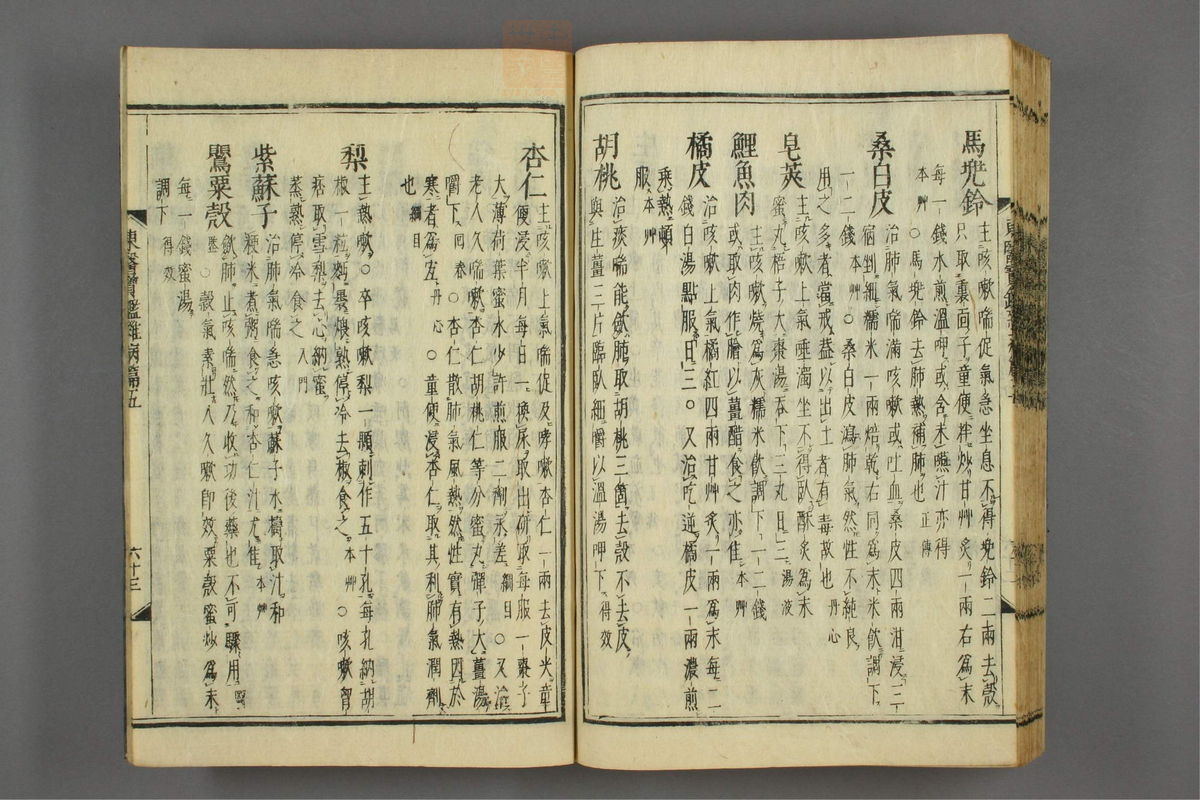 馬兜鈴
主咳嗽喘促氣急坐息不得兜鈴二兩去殼
只取裏面子童便拌炒甘艸炙一兩右爲末
每一錢水煎溫呷或含末嚥汁亦得
本艸○馬兜鈴去肺熱補肺也正傳
桑白皮
治肺氣喘滿咳嗽或吐血桑皮四兩泔浸三
宿剉細糯米一兩焙乾右同爲末米飮調下
一二錢本艸○桑白皮瀉肺氣然性不純良
用之多者當戒益以出土者有毒故也丹心
皂莢
主咳嗽上氣唾濁坐不得臥酥炙爲末
蜜丸梧子大棗湯吞下三丸日三湯液
鯉魚肉
主咳嗽燒爲灰糯米飮調下一二錢
或取肉作膾以薑醋食之亦佳本艸
橘皮
治咳嗽上氣橘紅四兩甘艸炙一兩爲末每二
錢白湯點服日三○又治吃逆橘皮一兩濃煎
乘熱頓
服本艸
胡桃
治痰喘能斂肺取胡桃三箇去殼不去皮
與生薑三片臨臥細嚼以溫湯呷下得效
杏仁
主咳嗽上氣喘促及哮嗽杏仁一兩去皮尖童
便浸半月每日一換尿取出硏取每服一棗子
大薄荷葉蜜水少許煎服二劑永差綱目○又治
老人久喘嗽杏仁胡桃仁等分蜜丸彈子大薑湯
嚼下回春○杏仁散肺氣風熱然性實有熱因於
寒者爲宜丹心○童便浸杏仁取其利肺氣潤劑
也綱目
梨
主熱嗽○卒咳嗽梨一顆刺作五十孔每孔納胡
椒一粒麪裹煨熟停冷去椒食之本艸○咳嗽胷
痞取雪梨去心納蜜
蒸熟停冷食之入門
紫蘇子
治肺氣喘急咳嗽蘇子水擣取汁和
粳米煮粥食之和杏仁汁尤佳本艸
鸎粟殼
歛肺止咳喘然乃收功後藥也不可驟用醫
鑑○殼氣素壯人久嗽卽效粟殼蜜炒爲末
每一錢蜜湯
調下得效
東醫寶鑑雜病篇五
六十三